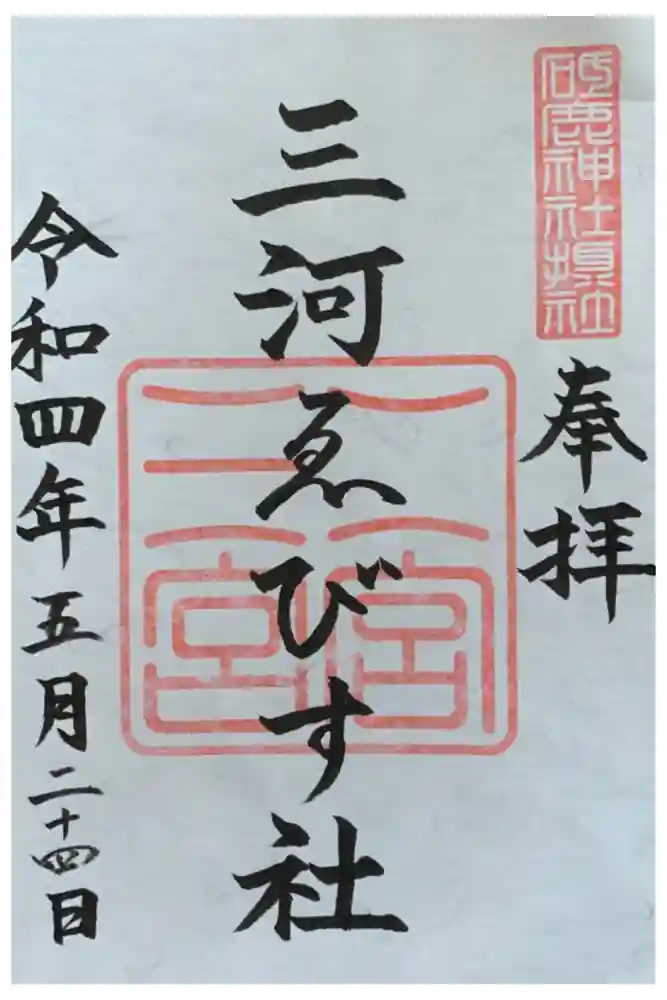 砥鹿神社攝社
奉拝
三河ゑびす社
令和四年五月二十四日